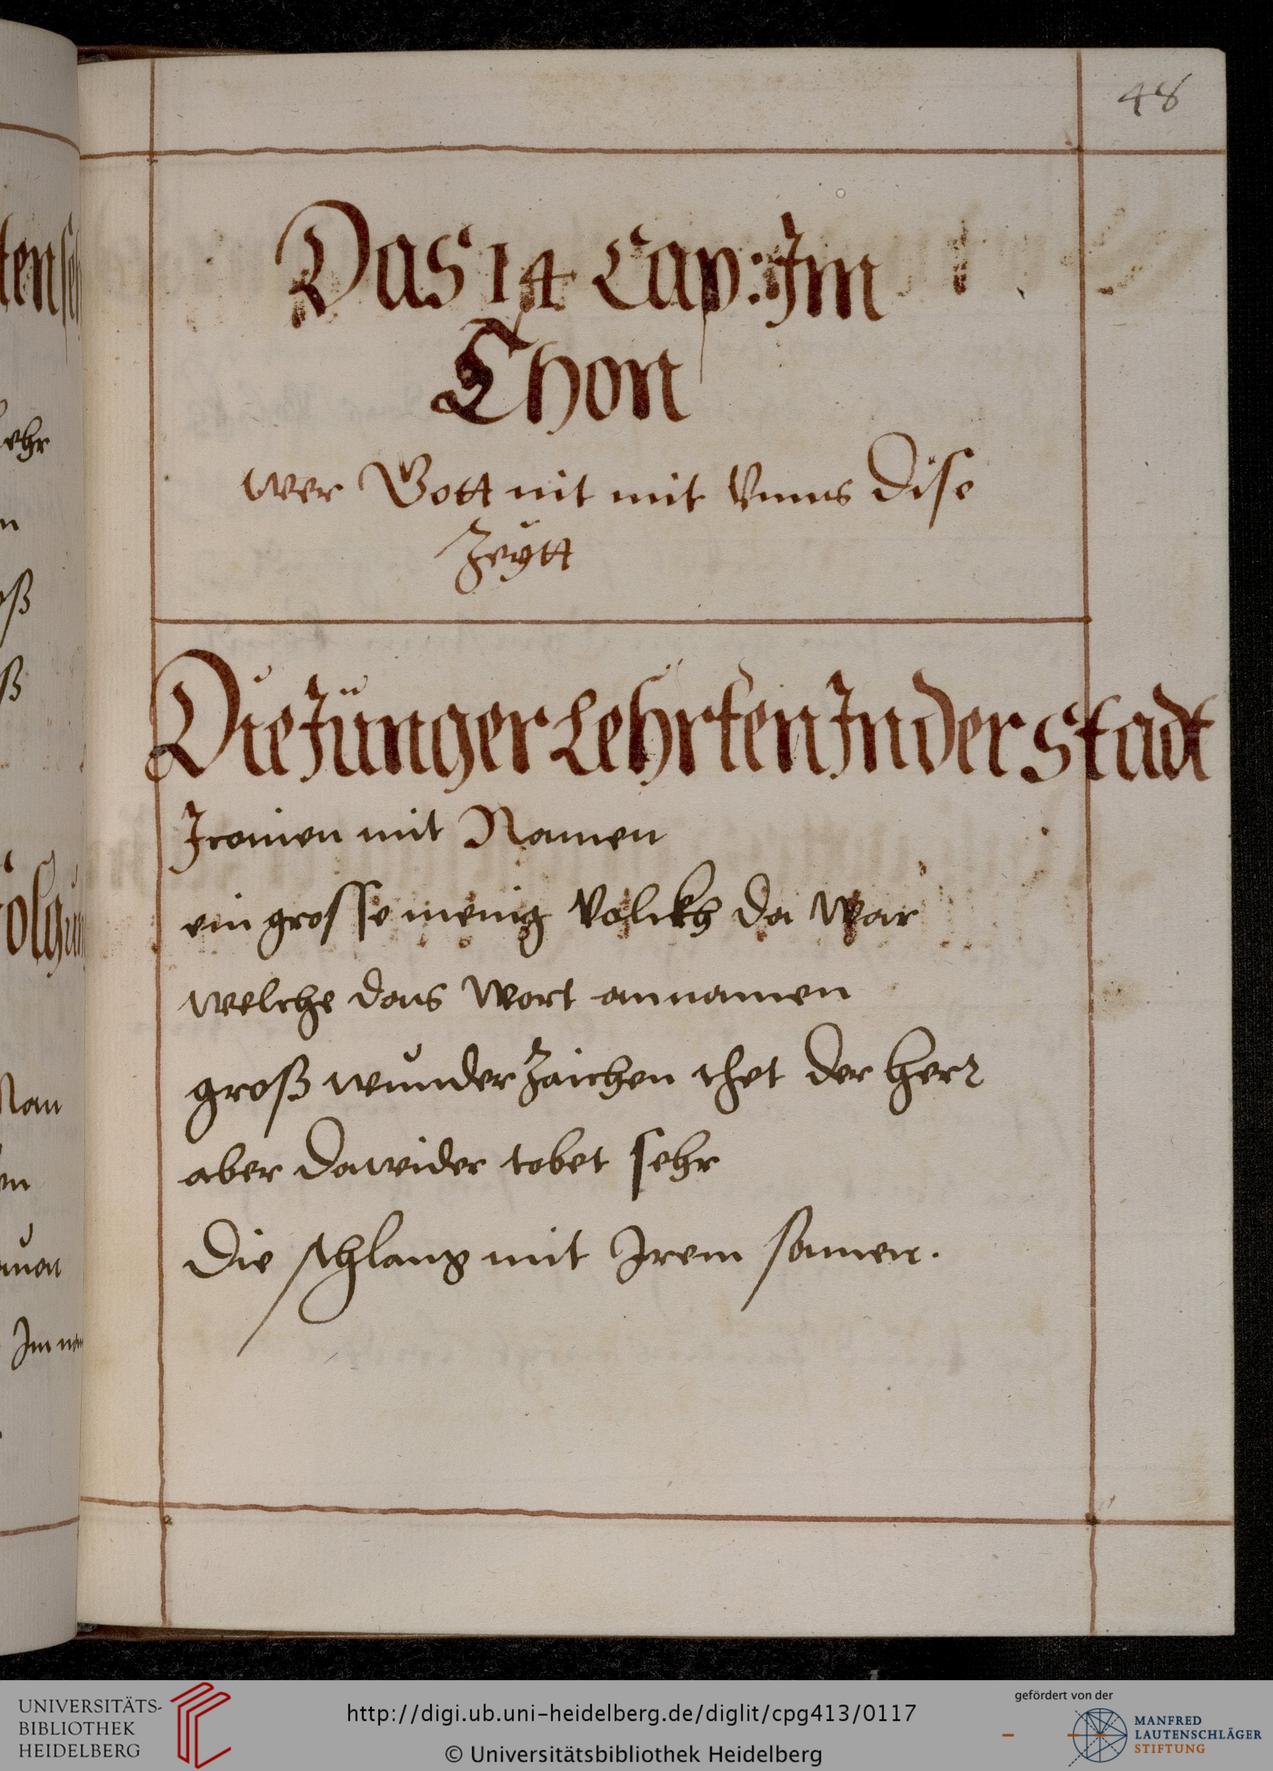 48
Das 14 Cap: Im
Thon
Wer Gott nit mit Vnns dise
Zeytt
Die Jünger Lehrten In der Stadt
Iconien mit Namen
ein grosse menig Volckh da war
welche das Wort annamen
groß wunder Zaichen thet der Herr
aber dawider tobet sehr
die schlang mit Irem samen.
ehr
Im
UNIVERSITÄTS-
BIBLIOTHEK
HEIDELBERG
http://digi.ub.uni-heidelberg.de/diglit/cpg413/0117
© Universitätsbibliothek Heidelberg
gefördert von der
MANFRED
LAUTENSCHLÄGER
STIFTUNG